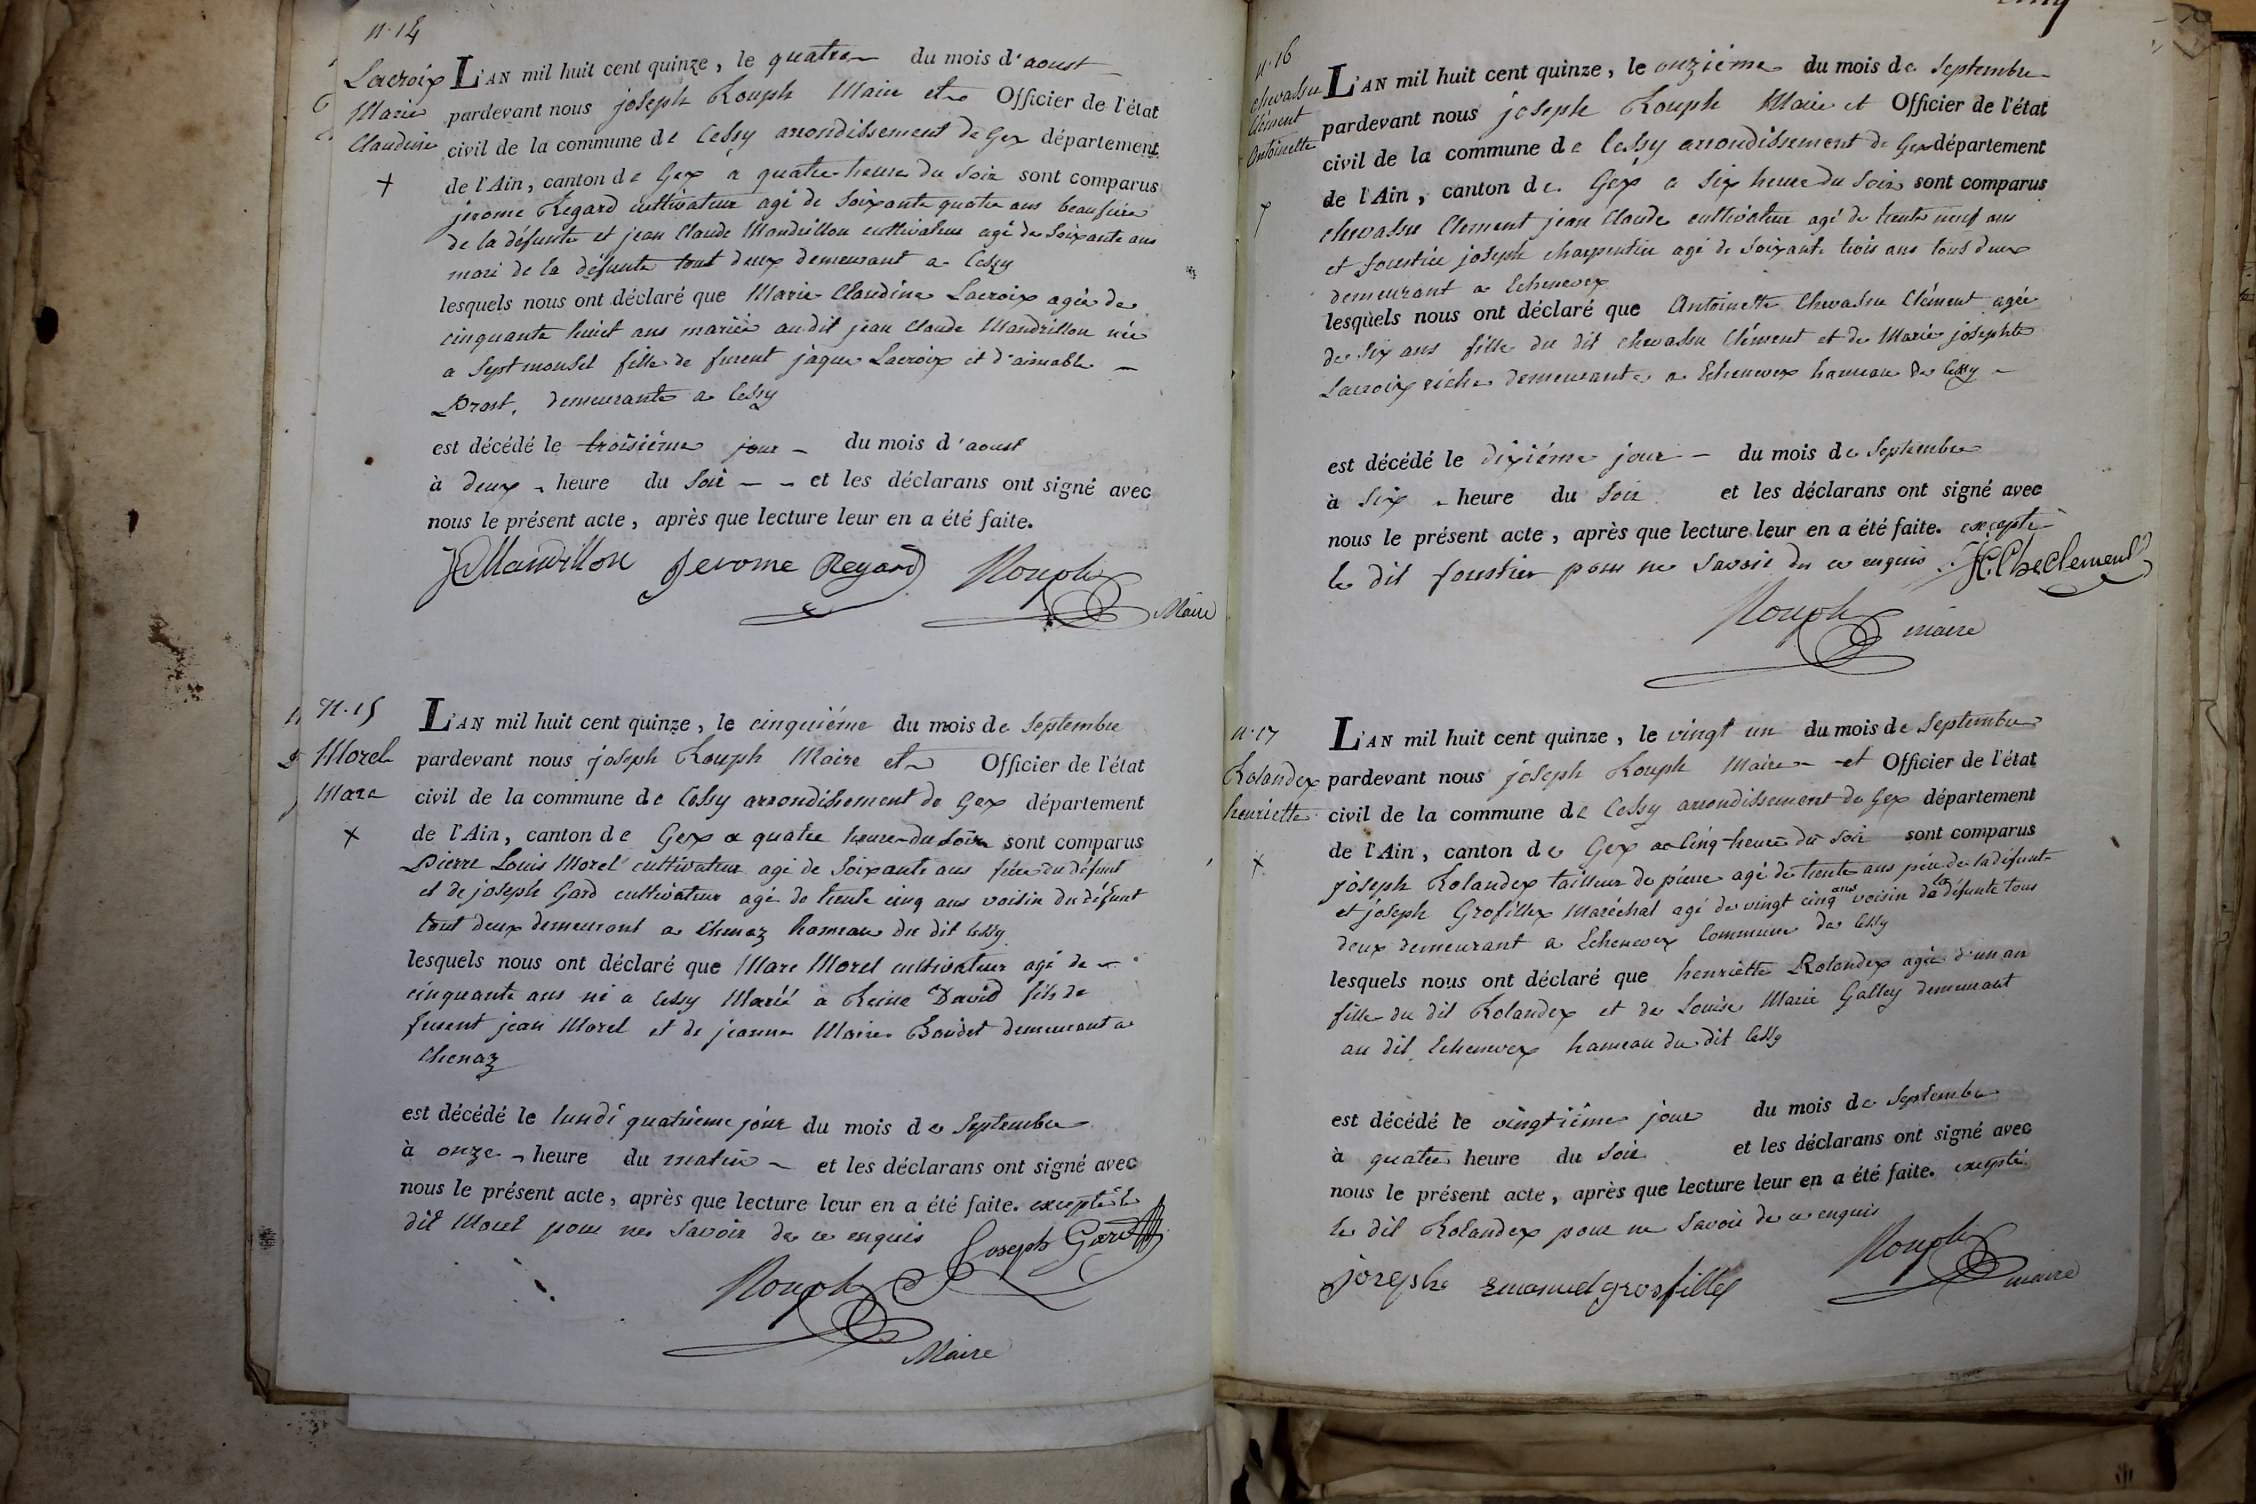 n. 14
Lacroix
Marie
Claudine
L'AN mil huit cent quinze, le quatre du mois d'aoust
pardevant nous joseph Rouph Maire et Officier de l'état
civil de la commune de Cessy arrondissement de Gex département
de l'Ain, canton de Gex à quatre heure du soir sont comparus
jerome Regard cultivateur agé de soixante quatre ans beaufrère
de la défunte et jean Claude Mandrillon cultivateur agé de soixante ans
mari de la défunte tout deux demeurant a Cessy
lesquels nous ont déclaré que Marie Claudine Lacroix agée de
cinquante huict ans mariée audit jean Claude Mandrillon née
a Septmonsel fille de furent jaque Lacroix et d'aimable
Prost, demeurante a Cessy
est décédé le troisiéme jour du mois d'aoust
à deux heure du soir et les déclarans ont signé avec
nous le présent acte, après que lecture leur en a été faite.
JCMandrillon Jerome Regard Rouph
Maire
n. 15
Morel
Marc
L'AN mil huit cent quinze, le cinquiéme du mois de septembre
pardevant nous joseph Rouph Maire et Officier de l'état
civil de la commune de Cessy arrondissement de Gex département
de l'Ain, canton de Gex a quatre heure du soir sont comparus
Pierre Louis Morel cultivateur agé de soixante ans frère du défunt
et de joseph Gard cultivateur agé de trente cinq ans voisin du défunt
tout deux demeurant a Chenaz hameau du dit Cessy
lesquels nous ont déclaré que Marc Morel cultivateur agé de
cinquante ans né a Cessy Marié a Reine David fils de
furent jean Morel et de jeanne Marie Boudet demeurant a
Chenaz
est décédé le lundi quatriéme jour du mois de septembre
à onze heure du matin et les déclarans ont signé avec
nous le présent acte, après que lecture leur en a été faite. excepté le
dit Morel pour ne savoir de ce enquis Joseph Gard
Rouph
Maire
n. 16
chevassu
Clément
Antoinette
L'AN mil huit cent quinze, le onziéme du mois de septembre
pardevant nous joseph Rouph Maire et Officier de l'état
civil de la commune de Cessy arrondissement de Gex département
de l'Ain, canton de Gex a six heure du soir sont comparus
chevassu Clement jean Claude cultivateur agé de trente neuf ans
et fourstier joseph charpentier agé de soixante trois ans tous deux
demeurant a Echenevex
lesquels nous ont déclaré que Antoinette Chevassu Clément agée
de six ans fille du dit chevassu Clément et de Marie josephte
Lacroix riche demeurante a Echenevex hameau de Cessy
est décédé le dixiéme jour du mois de septembre
à six heure du soir et les déclarans ont signé avec
nous le présent acte, après que lecture leur en a été faite. excepté
le dit fourstier pour ne savoir de ce enquis JCCheClement
Rouph maire
n. 17
Rolandex
henriette
L'AN mil huit cent quinze, le vingt un du mois de septembre
pardevant nous joseph Rouph Maire et Officier de l'état
civil de la commune de Cessy arrondissement de Gex département
de l'Ain, canton de Gex a cinq heure du soir sont comparus
joseph Rolandex tailleur de pierre agé de trente ans père de la défunte
et joseph Grofillex Maréchal agé de vingt cinq ans voisin de la défunte tous
deux demeurant a Echenevex Commune de Cessy
lesquels nous ont déclaré que henriette Rolandex agée d'un an
fille du dit Rolandex et de Louise Marie Galley demeurant
au dit Echenevex hameau du dit Cessy
est décédé le vingtiéme jour du mois de septembre
à quatre heure du soir et les déclarans ont signé avec
nous le présent acte, après que lecture leur en a été faite. excepté
le dit Rolandex pour ne savoir de ce enquis
josephe Emanuel grosfillex Rouph
maire